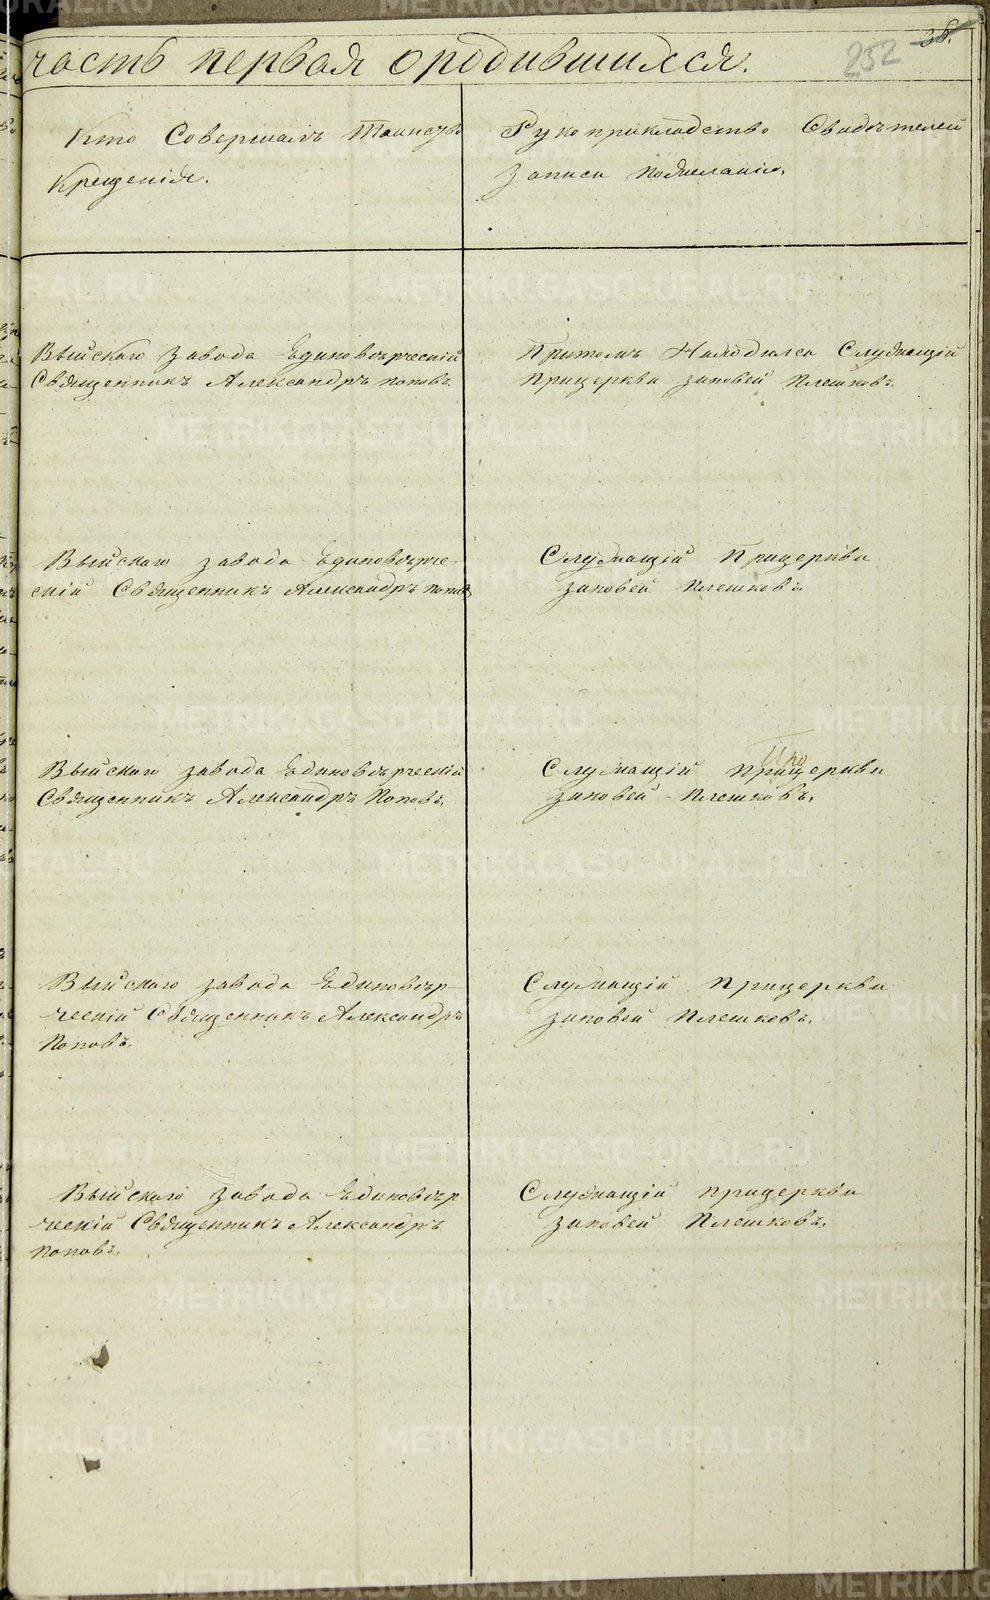 часть первая ородившихся.
252
Кто Совершалъ Таинство
Крещенія.
Рукоприкладство Свидѣтелей
Записи пожеланію.
Выйскаго завода Единовѣрческій
Священникъ Александръ поповъ.
Притомъ Находился Служащій
прицеркви Зиновей Плешковъ.
Выйскаго завода Единовѣрче-
скій Священникъ Александръ поповъ
Служащій Прицеркви
Зиновей Плешковъ.
Выйскаго завода Единовѣрческій
Священникъ Александръ Поповъ.
Служащій прицеркви
Зиновей Плешковъ.
Выйскаго завода Единовѣр
ческій Священникъ Александръ
Поповъ.
Служащій Прицеркви
Зиновей Плешковъ.
Выйскаго завода Единовѣр
ческій Священникъ Александръ
поповъ.
Служащій прицеркви
Зиновей Плешковъ.
METRIKI.GASO-URAL.RU